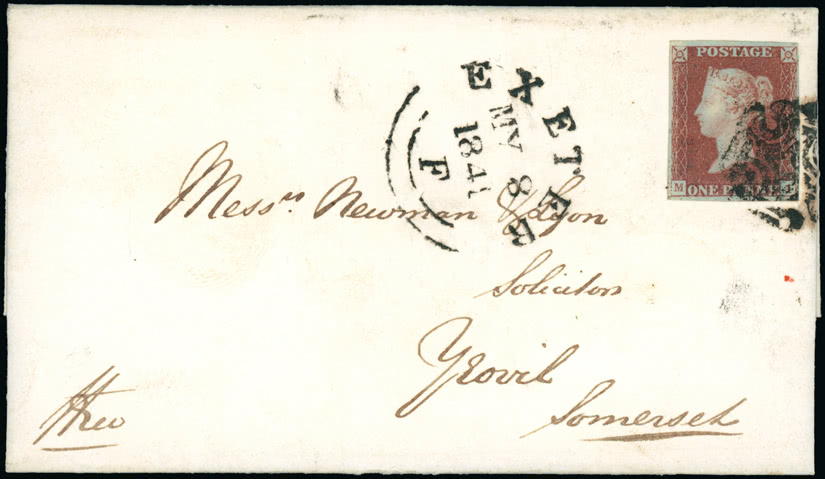 POSTAGE
ONE PENNY
M
EXETER
MY 8
1841
F
Messrs Newman & Lyon
Solicitors
Yeovil
Somerset